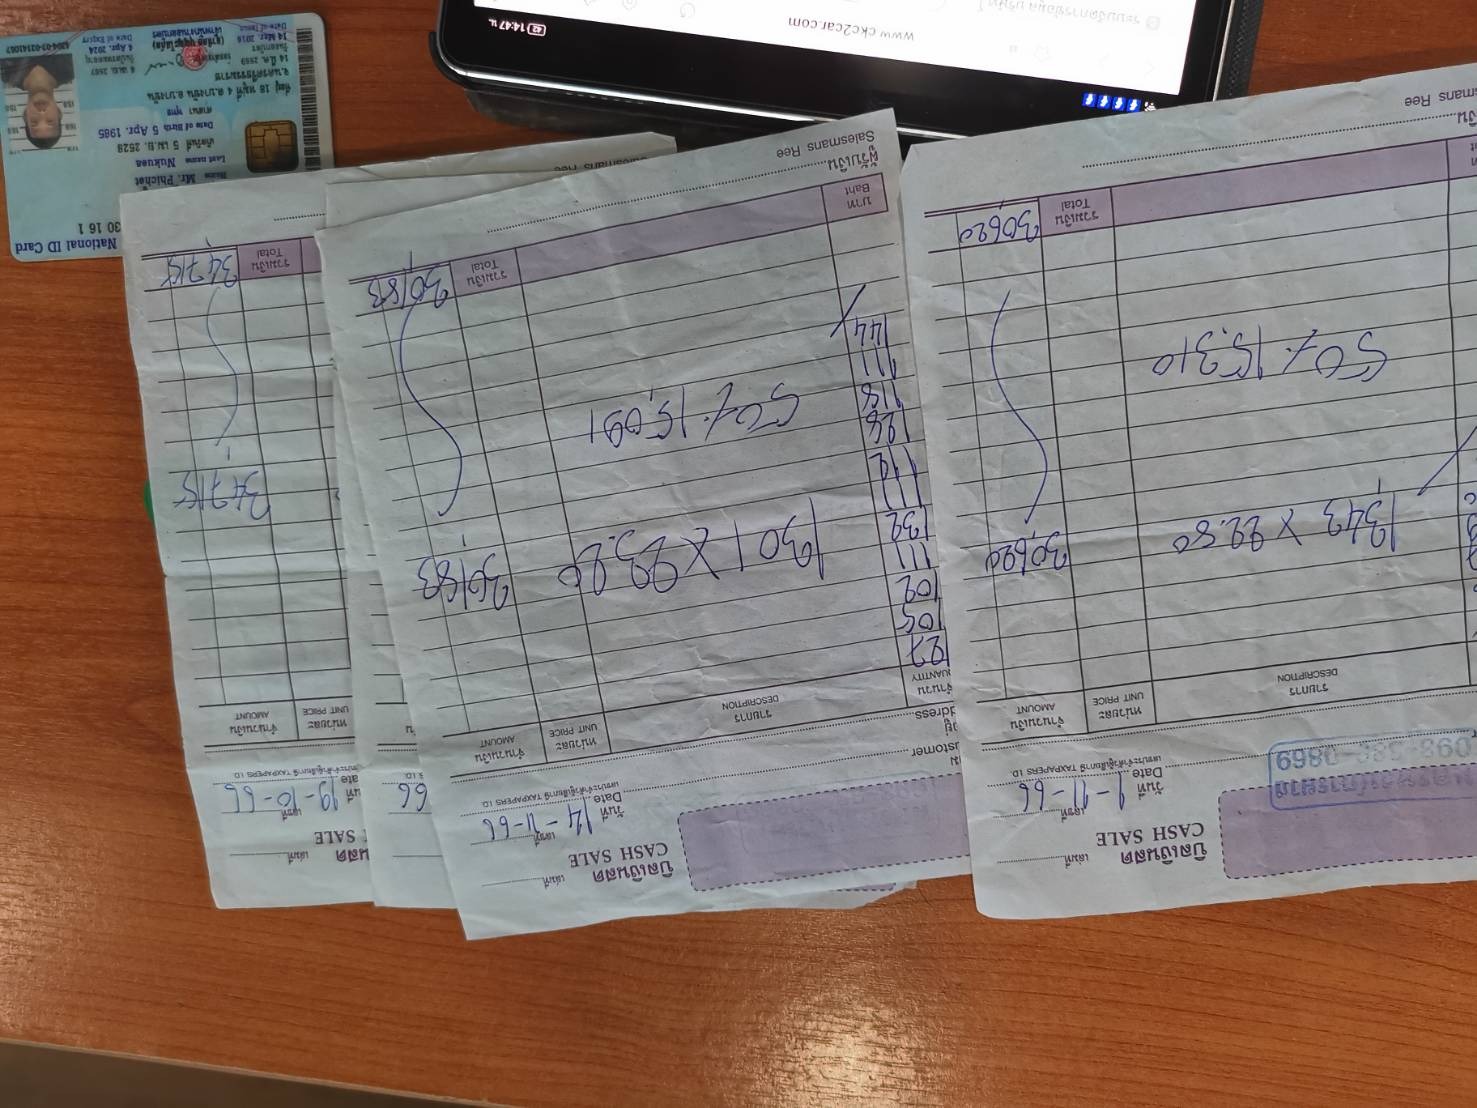 บิลเงินสด
CASH SALE
เล่มที่
เลขที่
วันที่ 1-11-66
Date
เลขประจำตัวผู้เสียภาษี TAXPAYERS I.D.
098-586-0869
รายการ
DESCRIPTION
หน่วยละ
UNIT PRICE
จำนวนเงิน
AMOUNT
1,343 x 22.80
30,620
50% 15,310
รวมเงิน
Total
30,620
Salesmans Ree
บิลเงินสด
CASH SALE
เล่มที่
เลขที่
วันที่ 14-11-66
Date
เลขประจำตัวผู้เสียภาษี TAXPAYERS I.D.
จำนวน
QUANTITY
รายการ
DESCRIPTION
หน่วยละ
UNIT PRICE
จำนวนเงิน
AMOUNT
127
105
102
111
132
111
112
126
118
111
144
1301 x 23.20
30,183
50% 15,091
บาท
Baht
รวมเงิน
Total
30,183
ผู้รับเงิน
Salesmans Ree
66
CASH SALE
เลขที่
19-10-66
TAXPAYERS I.D.
หน่วยละ
UNIT PRICE
จำนวนเงิน
AMOUNT
34,715
รวมเงิน
Total
34,715
National ID Card
30 16 1
Name Mr. Phichet
Last name Nukuea
เกิดวันที่ 5 เม.ย. 2528
Date of Birth 5 Apr. 1985
ศาสนา พุทธ
14 มี.ค. 2559
วันออกบัตร
14 Mar. 2016
Date of Issue
4 เม.ย. 2567
วันบัตรหมดอายุ
4 Apr. 2024
Date of Expiry
www.ckc2car.com
42 14:47 น.